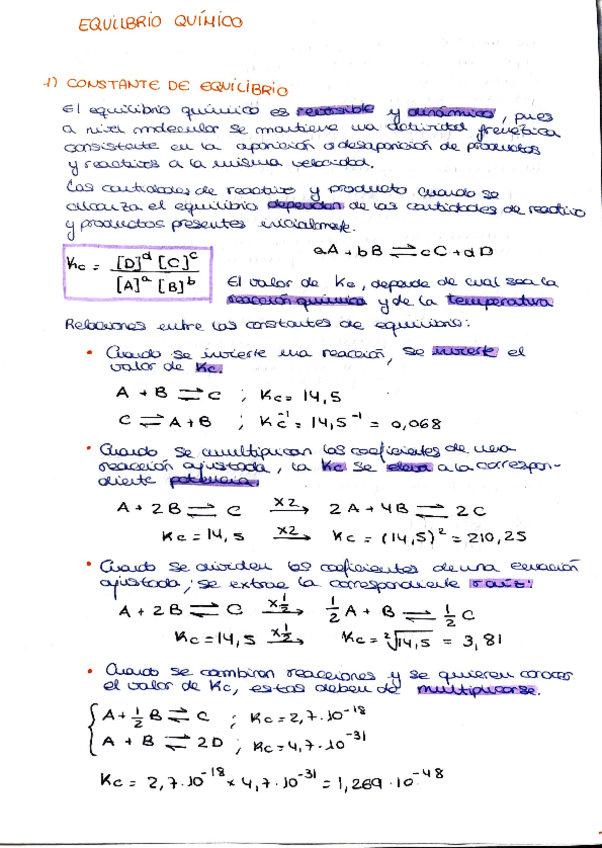 EQUILBRIO QUÍMICO
1) CONSTANTE DE EQUILIBRIO
El equilibrio químico es reversible y dinámico, pues
a nivel molecular se mantiene una actividad frenética
consistente en la aparición o desaparición de productos
y reactivos a la misma velocidad.
Las cantidades de reactivo y producto cuando se
alcanza el equilibrio dependen de las cantidades de reactivo
y productos presentes inicialmente.
aA + bB ⇌ cC + dD
Kc = [D]^d [C]^c / [A]^a [B]^b
El valor de Kc, depende de cual sea la
reacción química y de la temperatura
Relaciones entre las constantes de equilibrio:
• Cuando se invierte una reacción, se invierte el
valor de Kc.
A + B ⇌ C ; Kc = 14,5
C ⇌ A + B ; Kc^-1 = 14,5^-1 = 0,068
• Cuando se multiplican los coeficientes de una
reacción ajustada, la Kc se eleva a la correspon-
diente potencia.
A + 2B ⇌ C  x2→  2A + 4B ⇌ 2C
Kc = 14,5  x2→  Kc = (14,5)^2 = 210,25
• Cuando se dividen los coeficientes de una ecuación
ajustada, se extrae la correspondiente raíz:
A + 2B ⇌ C  x1/2→  1/2 A + B ⇌ 1/2 C
Kc = 14,5  x1/2→  Kc = ²√14,5 = 3,81
• Cuando se combinan reacciones y se quieren conocer
el valor de Kc, estas deben de multiplicarse.
A + 1/2 B ⇌ C ; Kc = 2,7·10^-18
A + B ⇌ 2D ; Kc = 4,7·10^-31
Kc = 2,7·10^-18 x 4,7·10^-31 = 1,269·10^-48